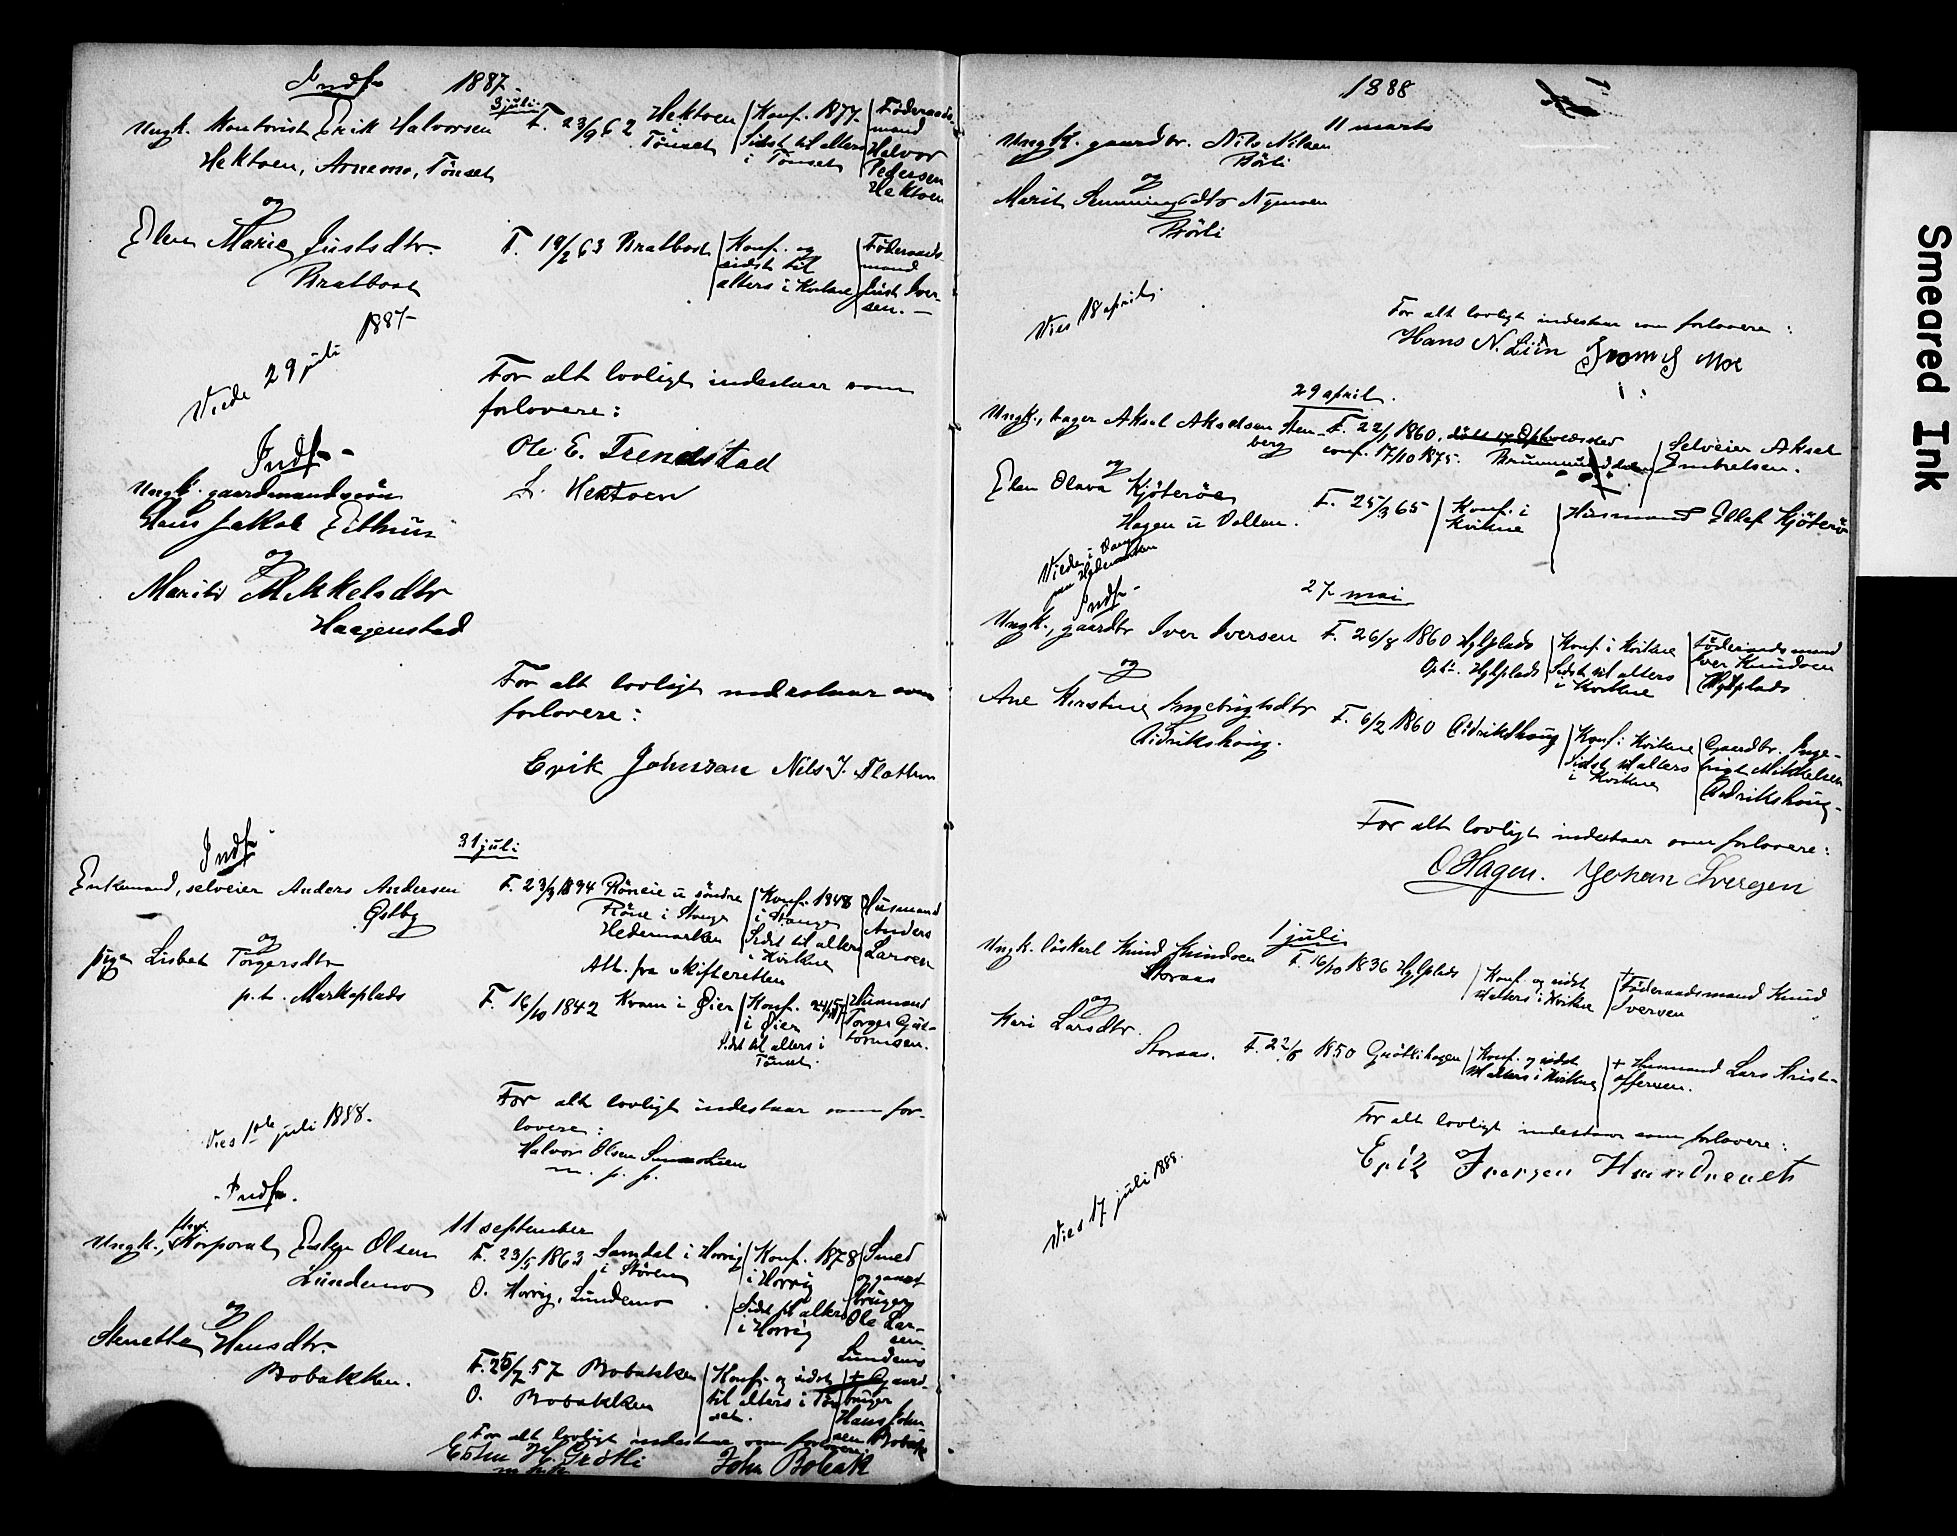 Indf. 1887
3 juli
Ungk. kontorist Erik Halvorsen
Hektoen, Arnemo, Tönset
F. 23/9 62 Hektoen
Tönset
Konf. 1877
Sidst til alters
i Tönset
Föderaads-
mand
Halvor
Pedersen
Hektoen
og
Elen Marie Justsdtr.
Bratbost
F. 19/2 63 Bratbost
Konf. og
sidst til
alters i Kvikne
Föderaads-
mand
Just Iver-
sen.
Viede 29 juli 1887
For alt lovligt indestaar som
forlovere:
Ole E. Trendstad
Hektoen
Indf.
Ungk. gaardmandssön
Hans Jakob Eithun
og
Marit Mikkelsdtr
Haagenstad
For alt lovligt indestaar som
forlovere:
Erik Johnsen Nils J. Flatten
Indf.
31 juli
Enkemand, selveier Anders Andersen
Östby
Röneie u söndre
Röne i Stange
Hedemarken
Konf. 1848
i Stange
Sidst til alters
i Kvikne
Husmand
Anders
Larsen
Att. fra skifteretten
og
pige Lisbet Torgersdtr
p.t. Markaplads
F. 16/10 1842 Kvam i Öier
Konf.
i Öier
Sidst til alters i
Tönset.
Husmand
Torger Gut-
tormsen.
Vies 1ste juli 1888.
For alt lovligt indestaar som for-
lovere:
Halvor Olsen
m. p. p.
Indf.
11 september
Ungk., Korporal Esten Olsen
Lundemo
F. 23/5 1863 Samdal i Horrig
i Stören
O. Horrig, Lundemo
Konf. 1878
i Horrig
Sidst til alters
i Horrig
Smed
og gaard
bruger
Ole Lar-
sen
Lundemo
og
Stenette Hansdtr.
Bobakken.
F. 25/7 57 Bobakken
O. Bobakken
Konf. og sidst
til alters i Tön
set.
+ Gaard-
bruger
Hans John
sen Bobak
For alt lovligt indestaar som forlovere:
Esten H. Grötli John Bobak
1888
11 marts
Ungk. gaardbr. Nils Nilsen
Börli
og
Marit Nymoen
Börli
Vies 18 april
For alt lovligt indestaar som forlovere:
Hans N. Liin Moe
29 april.
Ungk., bager Aksel Akselsen Sten-
berg
F. 22/1 1860.
conf. 17/10 1875.
Selveier Aksel
Embretsen.
og
Elen Olava Kjöteröe
Hagen u Vollan.
F. 25/3 65
Konf. i
Kvikne
Husmand Ellef Kjöterö
Viede i Vang
paa Hedemarken
Indf.
27 mai
Ungk., gaardbr Iver Iversen
F. 26/8 1860 Hylplads
Oph. Hylplads
Konf. i Kvikne
Sidst til alters
i Kvikne
Föderaadsmand
Iver Knudsen
Hylplads
og
Ane Kirstine Ingebrigtsdtr
Didrikshoug.
F. 6/2 1860 Didrikshoug
Konf. i Kvikne
Sidst til alters
i Kvikne
Gaardbr. Inge-
brigt Mikkelsen
Didrikshoug.
For alt lovligt indestaar som forlovere:
O Hagen. Johan Ivergen
1 juli
Ungk. löskarl Knud Knudsen
Storaas
F. 16/10 1836 Hylplads
Konf. og sidst
til alters i Kvikne
+ Föderaadsmand Knud
Iversen
og
Kari Larsdtr.
Storaas.
1850 Gröttihagen
Konf. og sidst
til alters i Kvikne
+ Husmand Lars Krist-
offersen.
For alt lovligt indestaar som forlovere:
Erik Ivergen
Vies 17 juli 1888.
Smeared Ink